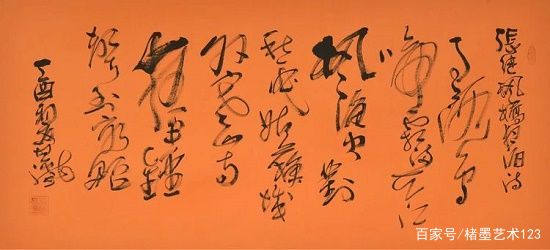 張继楓橋夜泊诗
月落烏
啼霜满天江
枫渔火對
愁眠姑蘇城
外寒山寺
夜半鐘
聲到客船
丁酉初夏
百家号/楮墨艺术123